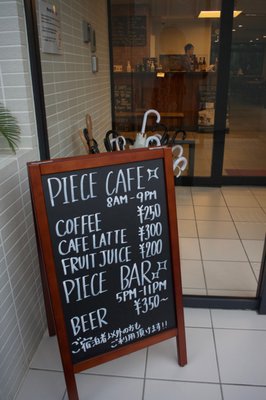 PIECE CAFE
8AM-9PM
COFFEE ¥250
CAFE LATTE ¥300
FRUIT JUICE ¥200
PIECE BAR
5PM-11PM
BEER ¥350~
ご宿泊者以外の方も
ご利用頂けます!!